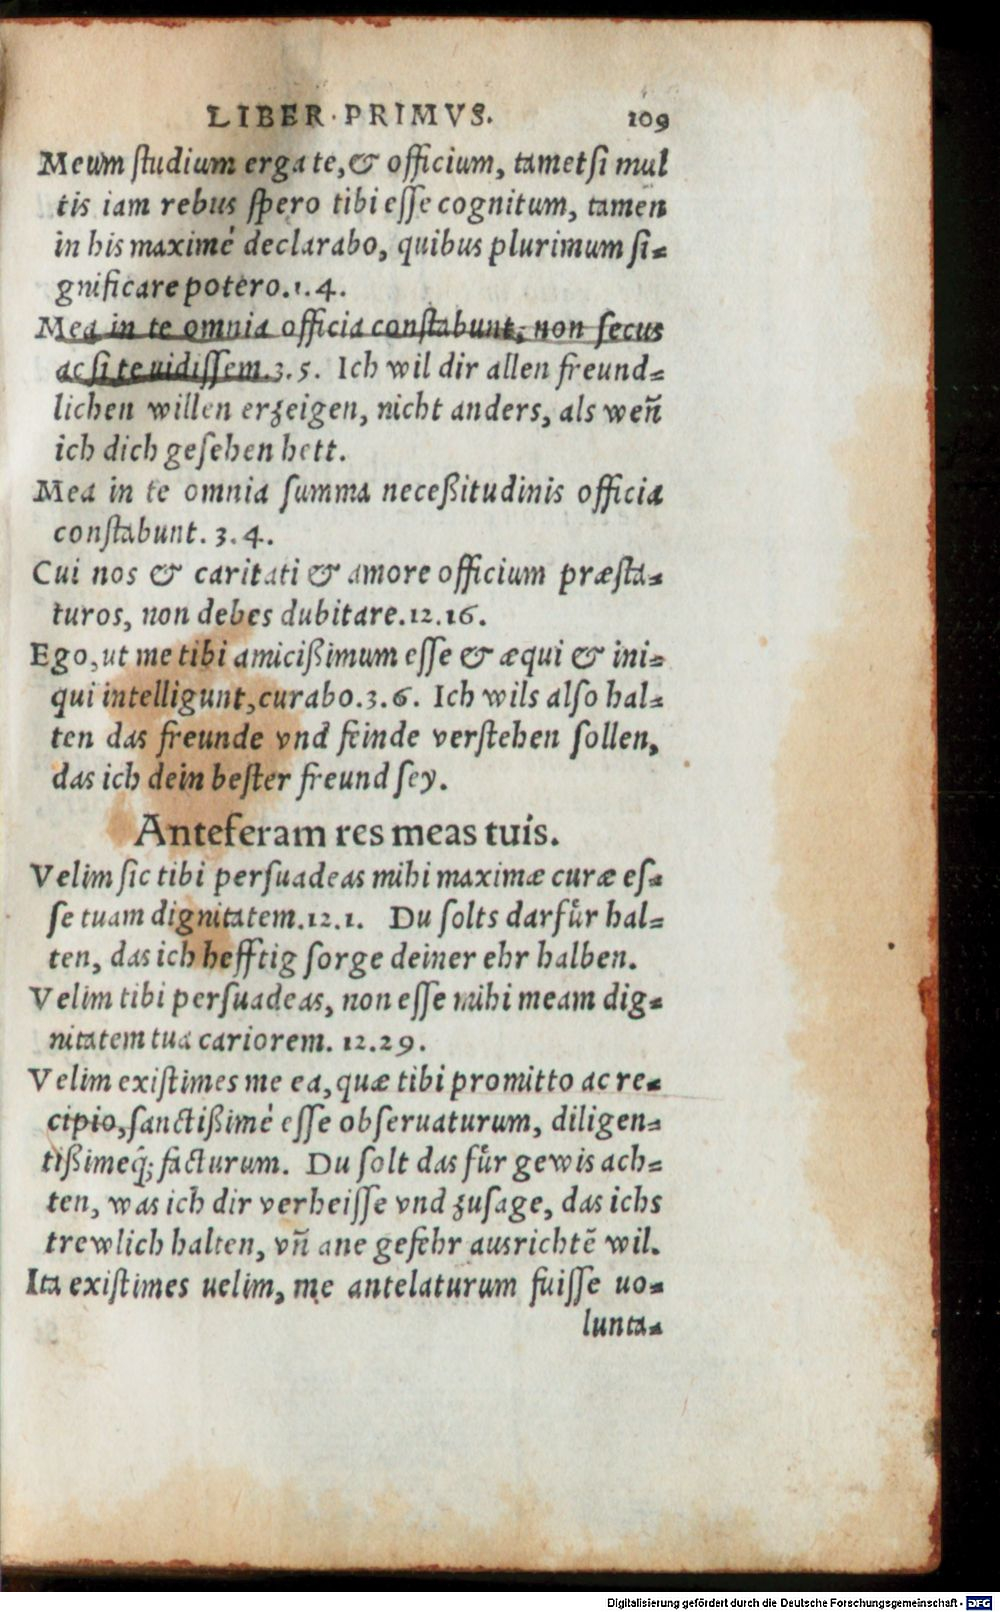 LIBER PRIMVS. 109
Meum ſtudium erga te, & officium, tametſi mul
tis iam rebus ſpero tibi eſſe cognitum, tamen
in his maximè declarabo, quibus plurimum ſi-
gnificare potero. 1. 4.
Mea in te omnia officia conſtabunt, non ſecus
ac ſi te uidiſſem. 3. 5. Ich wil dir allen freund-
lichen willen erzeigen, nicht anders, als weñ
ich dich geſehen hett.
Mea in te omnia ſumma neceßitudinis officia
conſtabunt. 3. 4.
Cui nos & caritati & amore officium præſta-
turos, non debes dubitare. 12. 16.
Ego, ut me tibi amicißimum eſſe & æqui & ini-
qui intelligunt, curabo. 3. 6. Ich wils alſo hal-
ten das freunde vnd feinde verſtehen ſollen,
das ich dein beſter freund ſey.
Anteferam res meas tuis.
Velim ſic tibi perſuadeas mihi maximæ curæ eſ-
ſe tuam dignitatem. 12. 1. Du ſolts darfuͤr hal-
ten, das ich hefftig ſorge deiner ehr halben.
Velim tibi perſuadeas, non eſſe mihi meam dig-
nitatem tua cariorem. 12. 29.
Velim exiſtimes me ea, quæ tibi promitto ac re-
cipio, ſanctißimè eſſe obſeruaturum, diligen-
tißimeq́; facturum. Du ſolt das fuͤr gewis ach-
ten, was ich dir verheiſſe vnd zuſage, das ichs
trewlich halten, vñ ane gefehr ausrichtẽ wil.
Ita exiſtimes uelim, me antelaturum fuiſſe uo-
lunta-
Digitalisierung gefördert durch die Deutsche Forschungsgemeinschaft - DFG